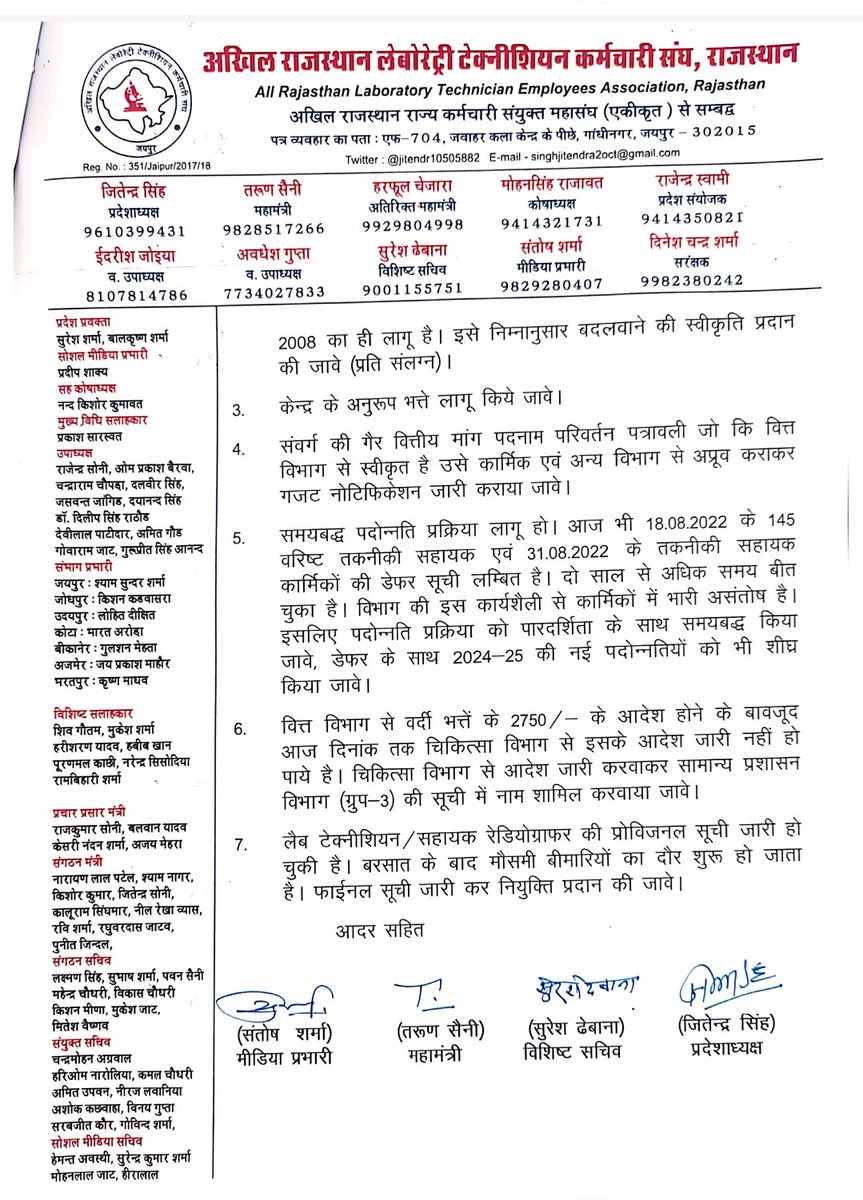 अखिल राजस्थान लेबोरेट्री टेक्नीशियन कर्मचारी संघ, राजस्थान
All Rajasthan Laboratory Technician Employees Association, Rajasthan
अखिल राजस्थान राज्य कर्मचारी संयुक्त महासंघ (एकीकृत ) से सम्बद्व
पत्र व्यवहार का पता : एफ-704, जवाहर कला केन्द्र के पीछे, गांधीनगर, जयपुर - 302015
Twitter : @jitendr10505882 E-mail - singhjitendra2oct@gmail.com
अखिल राजस्थान लेबोरेट्री टेक्नीशियन कर्मचारी संघ
जयपुर
Reg. No. : 351/Jaipur/2017/18
जितेन्द्र सिंह तरूण सैनी हरफूल चेजारा मोहनसिंह राजावत राजेन्द्र स्वामी
प्रदेशाध्यक्ष महामंत्री अतिरिक्त महामंत्री कोषाध्यक्ष प्रदेश संयोजक
9610399431 9828517266 9929804998 9414321731 9414350821
ईदरीश जोइया अवधेश गुप्ता सुरेश ढेबाना संतोष शर्मा दिनेश चन्द्र शर्मा
व. उपाध्यक्ष व. उपाध्यक्ष विशिष्ट सचिव मीडिया प्रभारी सरंक्षक
8107814786 7734027833 9001155751 9829280407 9982380242
प्रदेश प्रवक्ता
सुरेश शर्मा, बालकृष्ण शर्मा
सोशल मीडिया प्रभारी
प्रदीप शाक्य
सह कोषाध्यक्ष
नन्द किशोर कुमावत
मुख्य विधि सलाहकार
प्रकाश सारस्वत
उपाध्यक्ष
राजेन्द्र सोनी, ओम प्रकाश बैरवा,
चन्द्राराम चौपडा, दलवीर सिंह,
जसवन्त जांगिड, दयानन्द सिंह
डॉ. दिलीप सिंह राठौड
देवीलाल पाटीदार, अमित गौड
गोवाराम जाट, गुरूप्रीत सिंह आनन्द
संभाग प्रभारी
जयपुर : श्याम सुन्दर शर्मा
जोधपुर : किशन कडवासरा
उदयपुर : लोहित दीक्षित
कोटा : भारत अरोडा
बीकानेर : गुलशन मेहता
अजमेर : जय प्रकाश माहौर
भरतपुर : कृष्ण माधव
विशिष्ट सलाहकार
शिव गौतम, मुकेश शर्मा
हरीशरण यादव, हबीब खान
पूरणमल काछी, नरेन्द्र सिसोदिया
रामबिहारी शर्मा
प्रचार प्रसार मंत्री
राजकुमार सोनी, बलवान यादव
केसरी नंदन शर्मा, अजय मेहरा
संगठन मंत्री
नारायण लाल पटेल, श्याम नागर,
किशोर कुमार, जितेन्द्र सोनी,
कालूराम सिंघमार, नील रेखा व्यास,
रवि शर्मा, रघुवरदास जाटव,
पुनीत जिन्दल,
संगठन सचिव
लक्ष्मण सिंह, सुभाष शर्मा, पवन सैनी
महेन्द्र चौधरी, विकास चौधरी
किशन मीणा, मुकेश जाट,
मितेश वैष्णव
संयुक्त सचिव
चन्द्रमोहन अग्रवाल
हरिओम नारोलिया, कमल चौधरी
अमित उपवन, नीरज लवानिया
अशोक कछवाहा, विनय गुप्ता
सरबजीत कौर, गोविन्द शर्मा,
सोशल मीडिया सचिव
हेमन्त अवस्थी, सुरेन्द्र कुमार शर्मा
मोहनलाल जाट, हीरालाल
2008 का ही लागू है। इसे निम्नानुसार बदलवाने की स्वीकृति प्रदान
की जावे (प्रति संलग्न)।
3. केन्द्र के अनुरूप भत्ते लागू किये जावे।
4. संवर्ग की गैर वित्तीय मांग पदनाम परिवर्तन पत्रावली जो कि वित्त
विभाग से स्वीकृत है उसे कार्मिक एवं अन्य विभाग से अप्रूव कराकर
गजट नोटिफिकेशन जारी कराया जावे।
5. समयबद्ध पदोन्नति प्रक्रिया लागू हो। आज भी 18.08.2022 के 145
वरिष्ट तकनीकी सहायक एवं 31.08.2022 के तकनीकी सहायक
कार्मिकों की डेफर सूची लम्बित है। दो साल से अधिक समय बीत
चुका है। विभाग की इस कार्यशैली से कार्मिकों में भारी असंतोष है।
इसलिए पदोन्नति प्रक्रिया को पारदर्शिता के साथ समयबद्ध किया
जावे, डेफर के साथ 2024–25 की नई पदोन्नतियों को भी शीघ्र
किया जावे।
6. वित्त विभाग से वर्दी भत्तें के 2750/– के आदेश होने के बावजूद
आज दिनांक तक चिकित्सा विभाग से इसके आदेश जारी नहीं हो
पाये है। चिकित्सा विभाग से आदेश जारी करवाकर सामान्य प्रशासन
विभाग (ग्रुप–3) की सूची में नाम शामिल करवाया जावे।
7. लैब टेक्नीशियन/सहायक रेडियोग्राफर की प्रोविजनल सूची जारी हो
चुकी है। बरसात के बाद मौसमी बीमारियों का दौर शुरू हो जाता
है। फाईनल सूची जारी कर नियुक्ति प्रदान की जावे।
आदर सहित
सुरेश ढेबाना
(संतोष शर्मा) (तरूण सैनी) (सुरेश ढेबाना) (जितेन्द्र सिंह)
मीडिया प्रभारी महामंत्री विशिष्ट सचिव प्रदेशाध्यक्ष